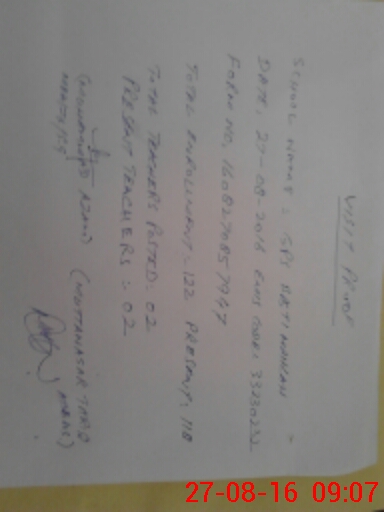 VISIT PROOF
SCHOOL NAME: GPS
DATE: 27-08-2016 EMIS CODE: 33230232
FORM NO. 1608270857947
TOTAL ENROLLMENT: 122 PRESENT: 118
TOTAL TEACHERS POSTED: 02
PRESENT TEACHERS = 02
(MUHAMMAD AZAM) (
27-08-16 09:07